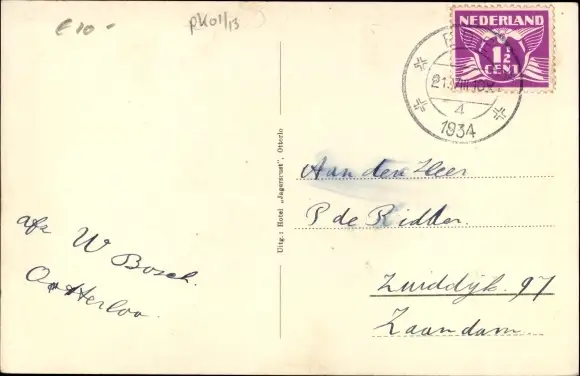 € 10 -
pk01/13
NEDERLAND
1½
CENT
4
1934
Uitg.: Hotel „Jagersrust", Otterlo
Aan den Heer
P de Ridder.
Zuiddijk. 97
Zaandam
afz W Bosch.
Otterloo.